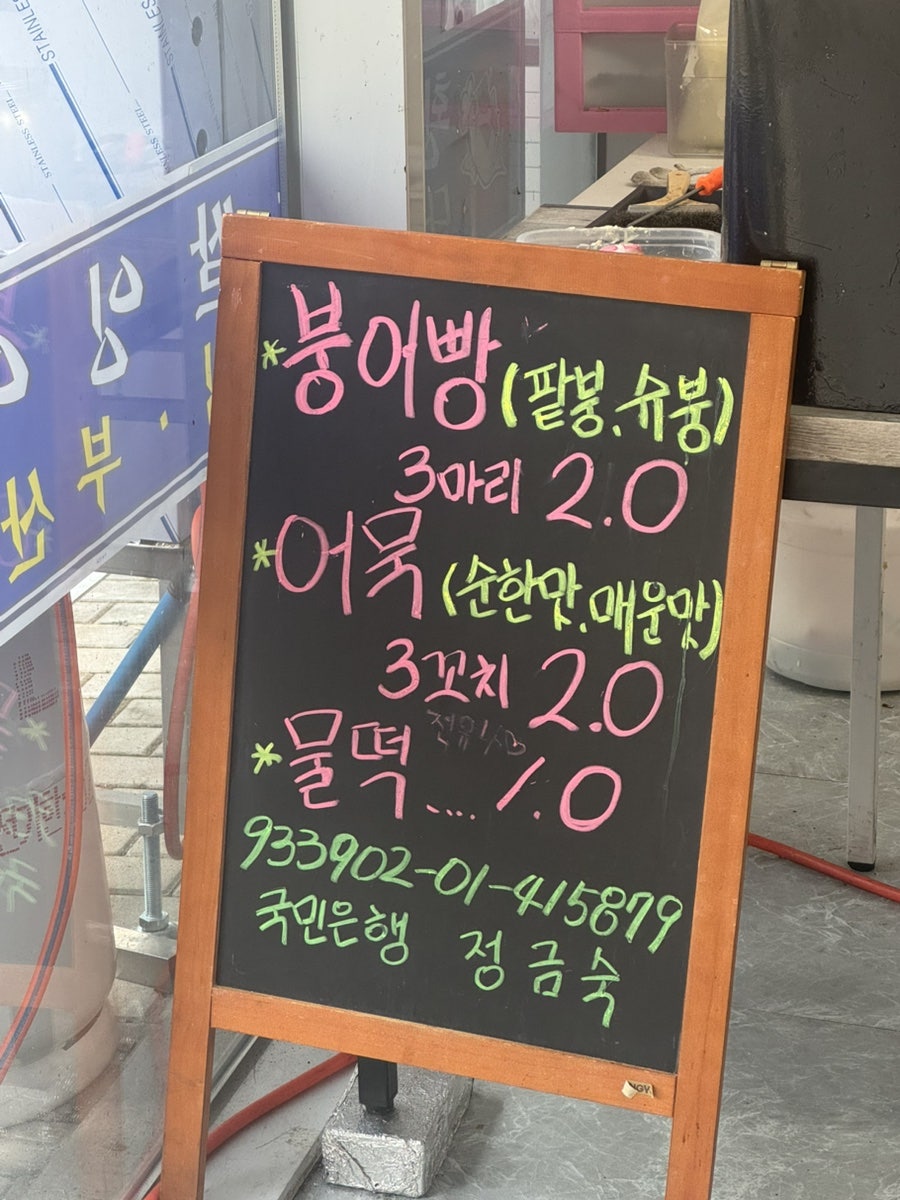 STAINLESS STEEL
STAINLESS STEEL
STAINLESS STEEL
부산
*붕어빵(팥붕.슈붕)
3마리 2.0
*어묵(순한맛.매운맛)
3꼬치 2.0
*물떡....1.0
933902-01-415879
국민은행 정금숙